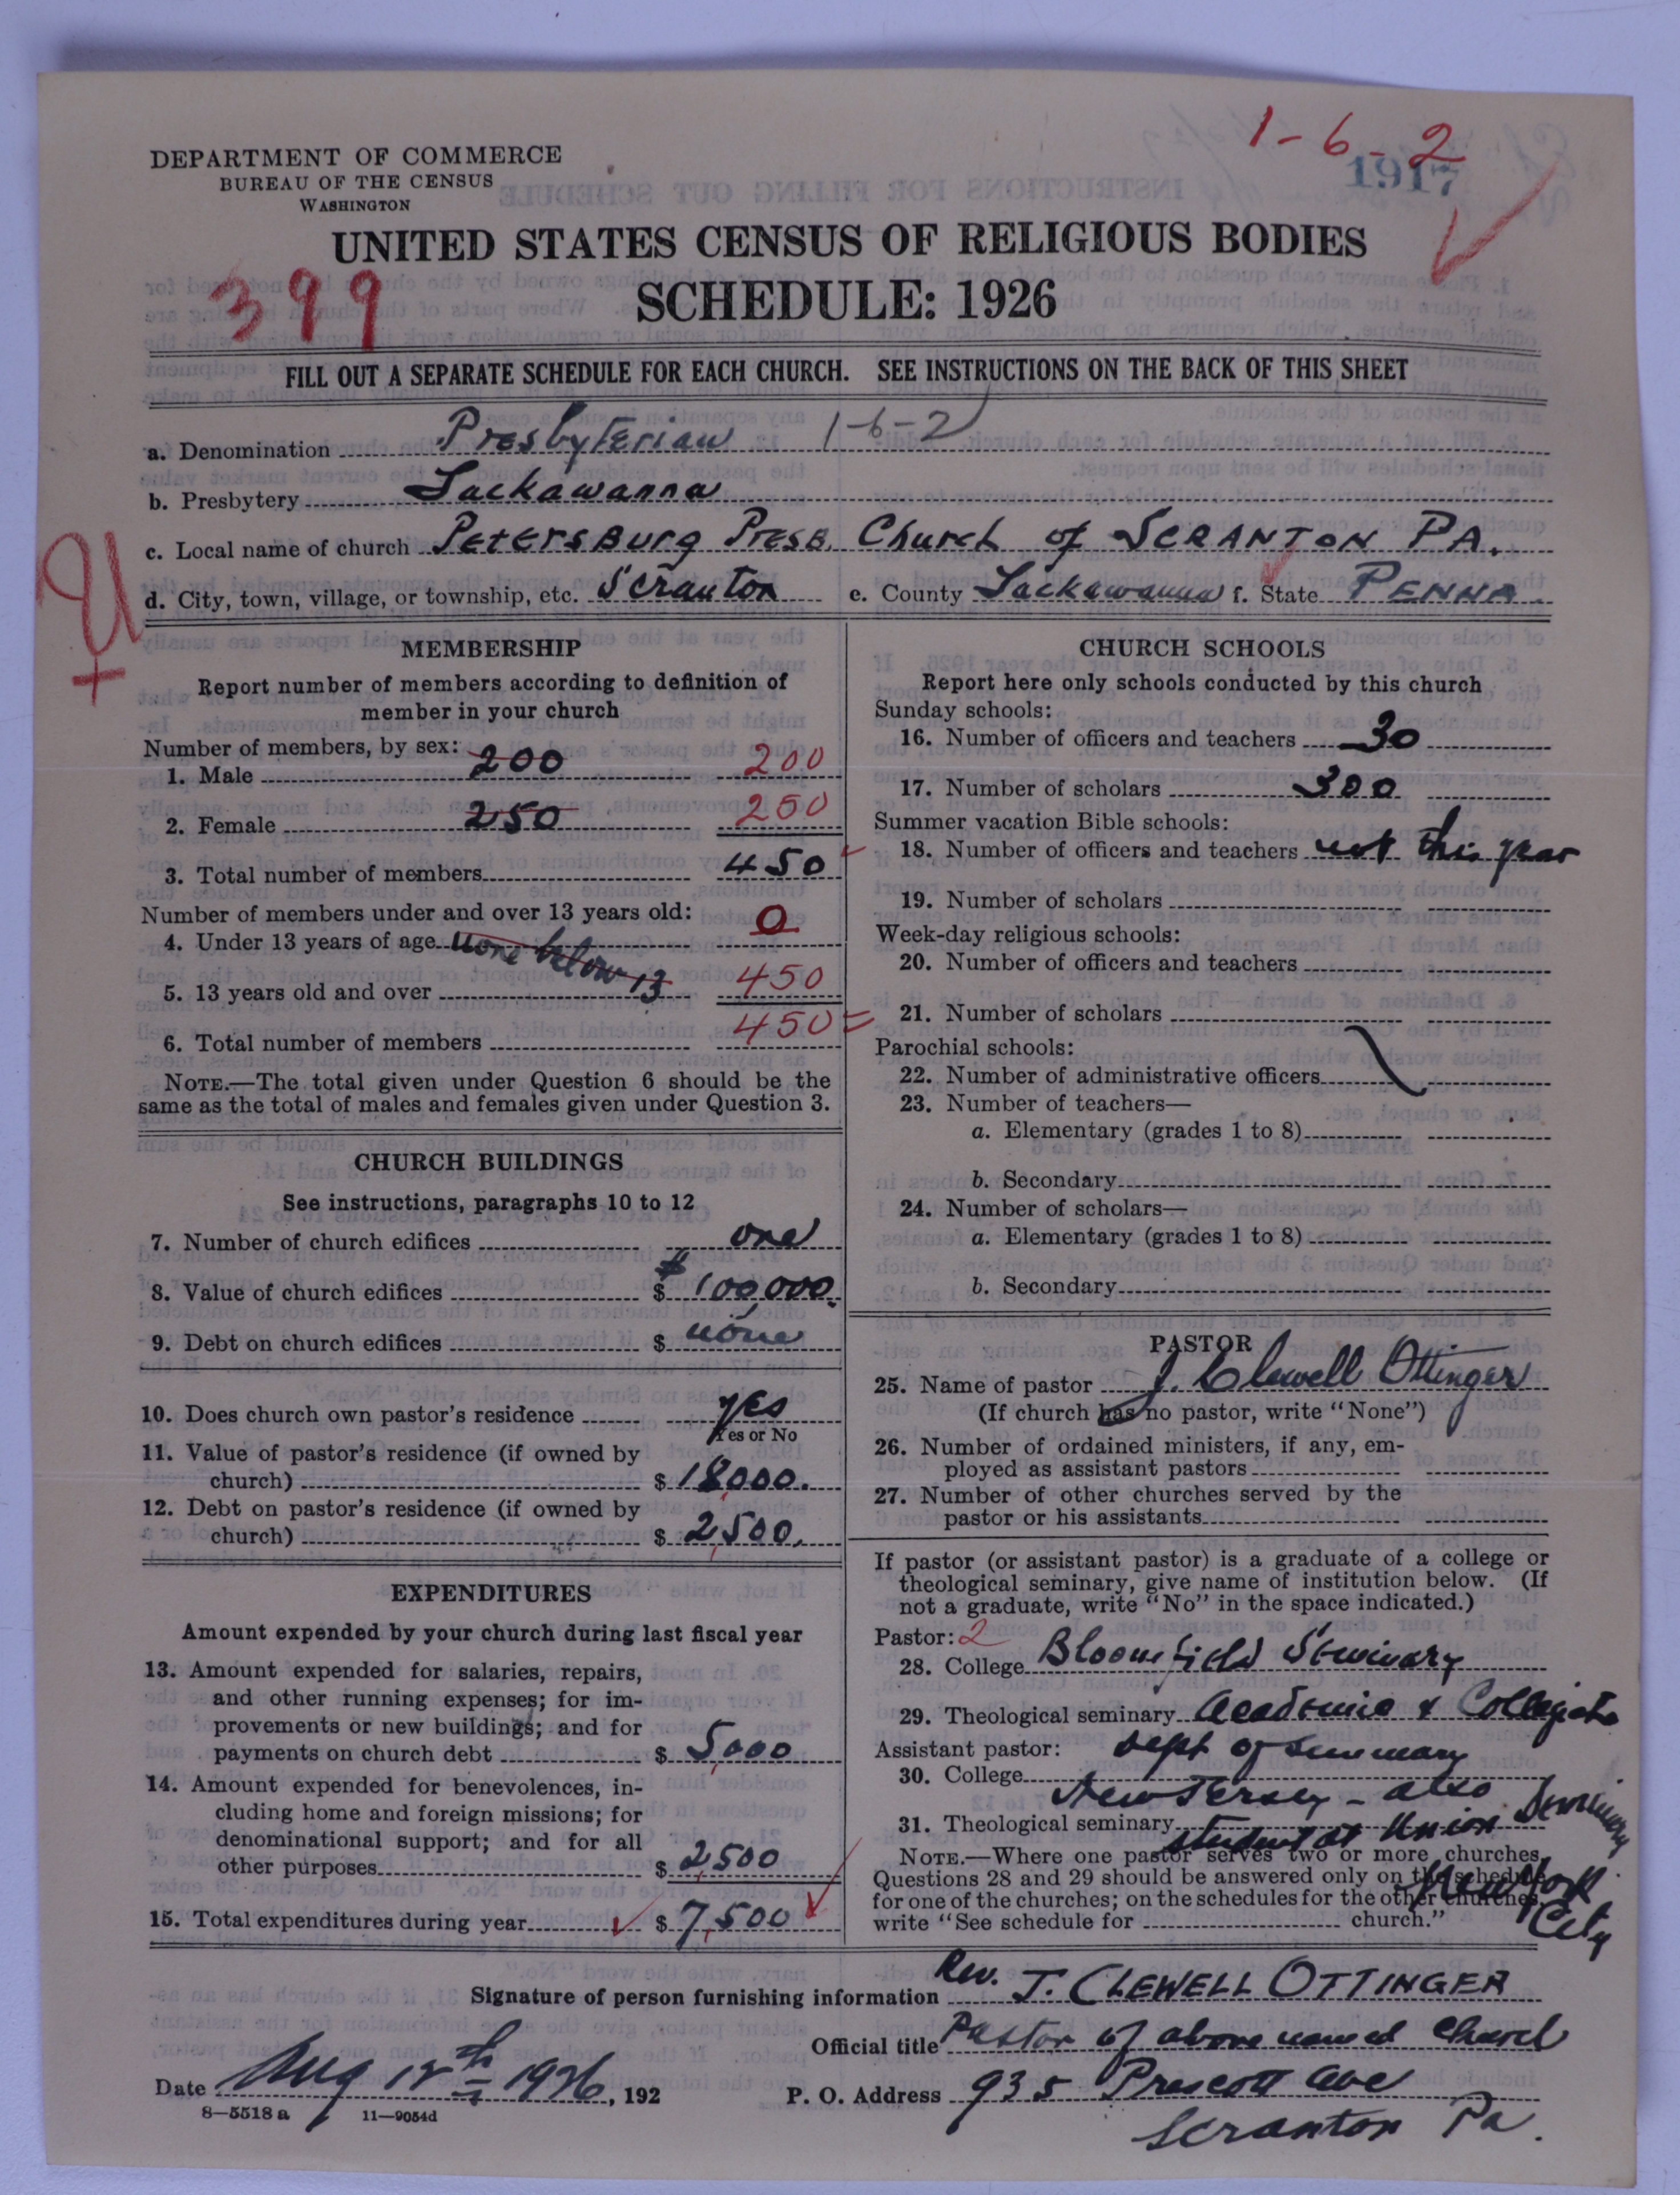 1-6-2
1917
DEPARTMENT OF COMMERCE
BUREAU OF THE CENSUS
WASHINGTON
UNITED STATES CENSUS OF RELIGIOUS BODIES
399
SCHEDULE: 1926
FILL OUT A SEPARATE SCHEDULE FOR EACH CHURCH. SEE INSTRUCTIONS ON THE BACK OF THIS SHEET
a. Denomination Presbyterian 1-6-2
b. Presbytery Lackawanna
c. Local name of church Petersburg Presb. Church of SCRANTON PA.
d. City, town, village, or township, etc. Scranton e. County Lackawanna f. State PENNA.
U
MEMBERSHIP
Report number of members according to definition of
member in your church
Number of members, by sex:
1. Male 200 200
2. Female 250 250
3. Total number of members 450
Number of members under and over 13 years old:
4. Under 13 years of age none below 13 0
5. 13 years old and over 450
6. Total number of members 450 =
NOTE.—The total given under Question 6 should be the
same as the total of males and females given under Question 3.
CHURCH BUILDINGS
See instructions, paragraphs 10 to 12
7. Number of church edifices one
8. Value of church edifices $ 100,000.
9. Debt on church edifices $ none
10. Does church own pastor's residence yes
Yes or No
11. Value of pastor's residence (if owned by
church) $ 18000.
12. Debt on pastor's residence (if owned by
church) $ 2,500.
EXPENDITURES
Amount expended by your church during last fiscal year
13. Amount expended for salaries, repairs,
and other running expenses; for im-
provements or new buildings; and for
payments on church debt $ 5,000
14. Amount expended for benevolences, in-
cluding home and foreign missions; for
denominational support; and for all
other purposes $ 2,500
15. Total expenditures during year $ 7,500
CHURCH SCHOOLS
Report here only schools conducted by this church
Sunday schools:
16. Number of officers and teachers 30
17. Number of scholars 300
Summer vacation Bible schools:
18. Number of officers and teachers not this year
19. Number of scholars
Week-day religious schools:
20. Number of officers and teachers
21. Number of scholars
Parochial schools:
22. Number of administrative officers
23. Number of teachers—
a. Elementary (grades 1 to 8)
b. Secondary
24. Number of scholars—
a. Elementary (grades 1 to 8)
b. Secondary
PASTOR
25. Name of pastor J. Clewell Ottinger
(If church has no pastor, write "None")
26. Number of ordained ministers, if any, em-
ployed as assistant pastors
27. Number of other churches served by the
pastor or his assistants
If pastor (or assistant pastor) is a graduate of a college or
theological seminary, give name of institution below. (If
not a graduate, write "No" in the space indicated.)
Pastor: 2
28. College Bloomfield Seminary
29. Theological seminary Academic & Collegiate
Assistant pastor: Dept of Seminary
30. College New Jersey - also
31. Theological seminary student at Union Seminary
New York
City
NOTE.—Where one pastor serves two or more churches,
Questions 28 and 29 should be answered only on the schedule
for one of the churches; on the schedules for the other churches,
write "See schedule for church."
Signature of person furnishing information Rev. J. CLEWELL OTTINGER
Official title Pastor of above named Church
Date Aug 12th 1926, 192 P. O. Address 935 Prescott Ave
Scranton Pa.
8—5518 a 11—9054d